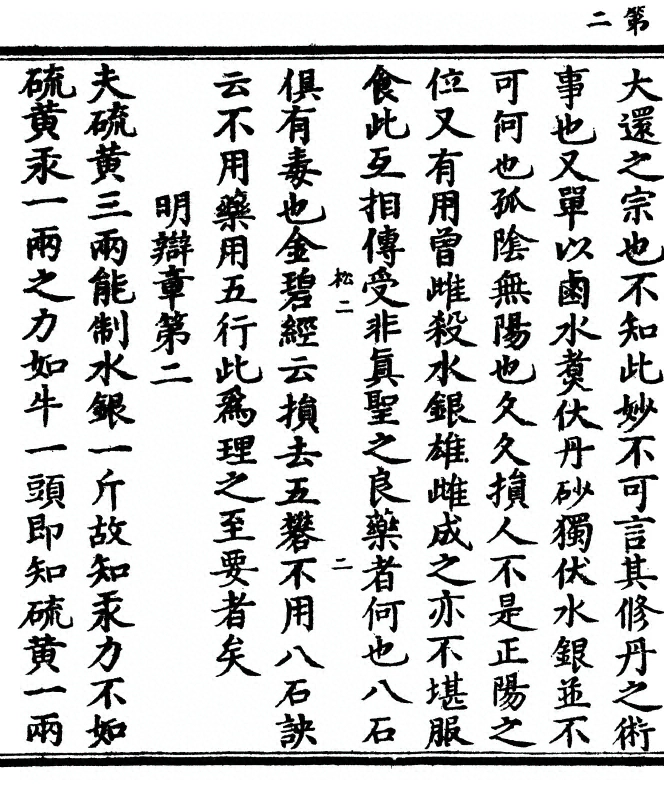 第二
大還之宗也不知此妙不可言其修丹之術
事也又單以鹵水煑伏丹砂獨伏水銀並不
可何也孤隂無陽也久久損人不是正陽之
位又有用曾雌殺水銀雄雌成之亦不堪服
食此互相傳受非眞聖之良藥者何也八石
松二
二
俱有毒也金碧經云損去五礬不用八石訣
云不用藥用五行此爲理之至要者矣
明辯章第二
夫硫黄三兩能制水銀一斤故知汞力不如
硫黄汞一兩之力如牛一頭即知硫黄一兩